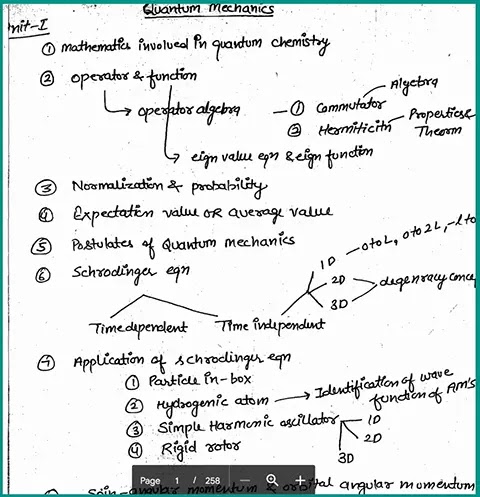 Quantum Mechanics
Unit-I
① Mathematics involved in quantum chemistry
② operator & function
Algebra
operator algebra — ① Commutator
② Hermiticity Properties &
Theorm
eign value eqn & eign function
③ Normalization & probability
④ Expectation value OR average value
⑤ Postulates of Quantum mechanics
⑥ Schrodinger eqn
1D — 0 to L, 0 to 2L, -l to
2D
3D
degenracy conce
Time dependent Time independent
⑦ Application of schrodinger eqn
① Particle in-box
② Hydrogenic atom → Identification of wave
function of AM's
③ Simple Harmonic oscillator 1D
2D
3D
④ Rigid rotor
Page 1 / 258
Spin-angular momentum & orbital angular momentum